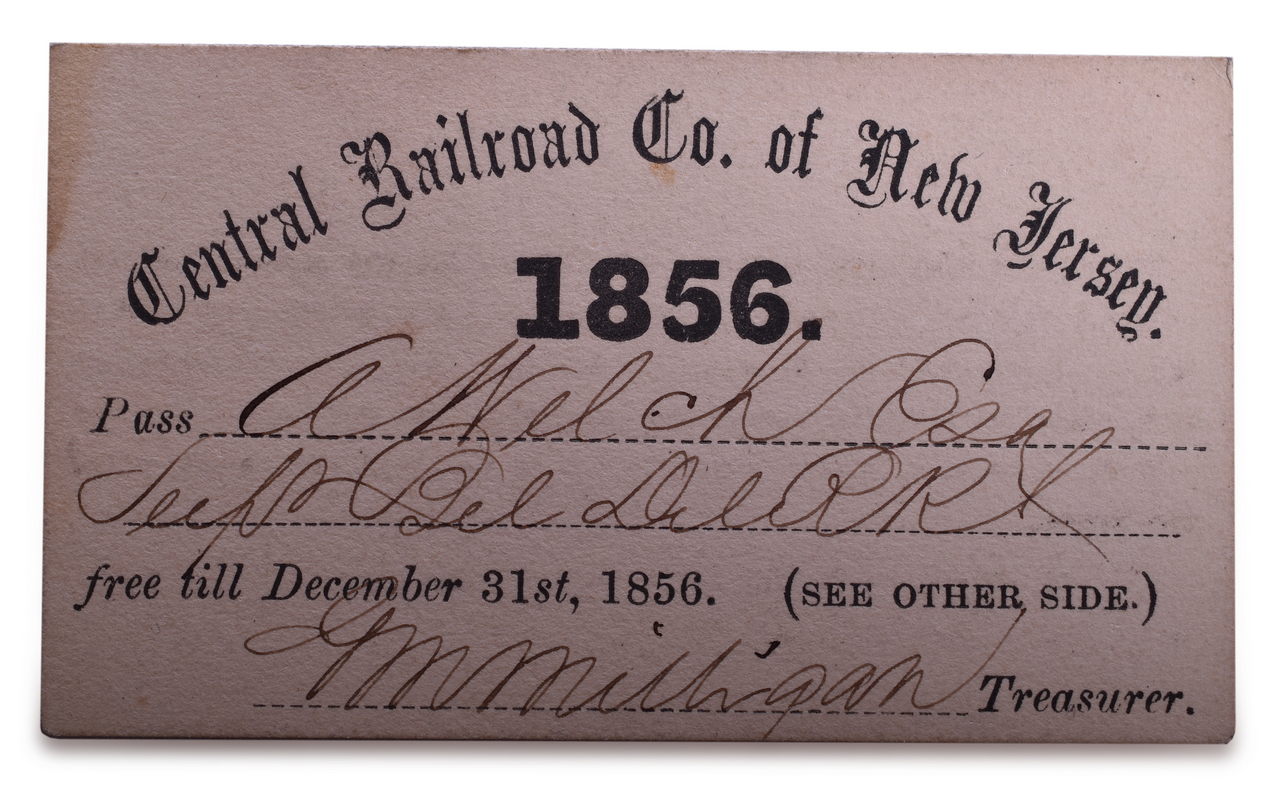 Central Railroad Co. of New Jersey.
1856.
Pass A Welch Esq
Supt Bel Del RR
free till December 31st, 1856. (SEE OTHER SIDE.)
Milligan Treasurer.